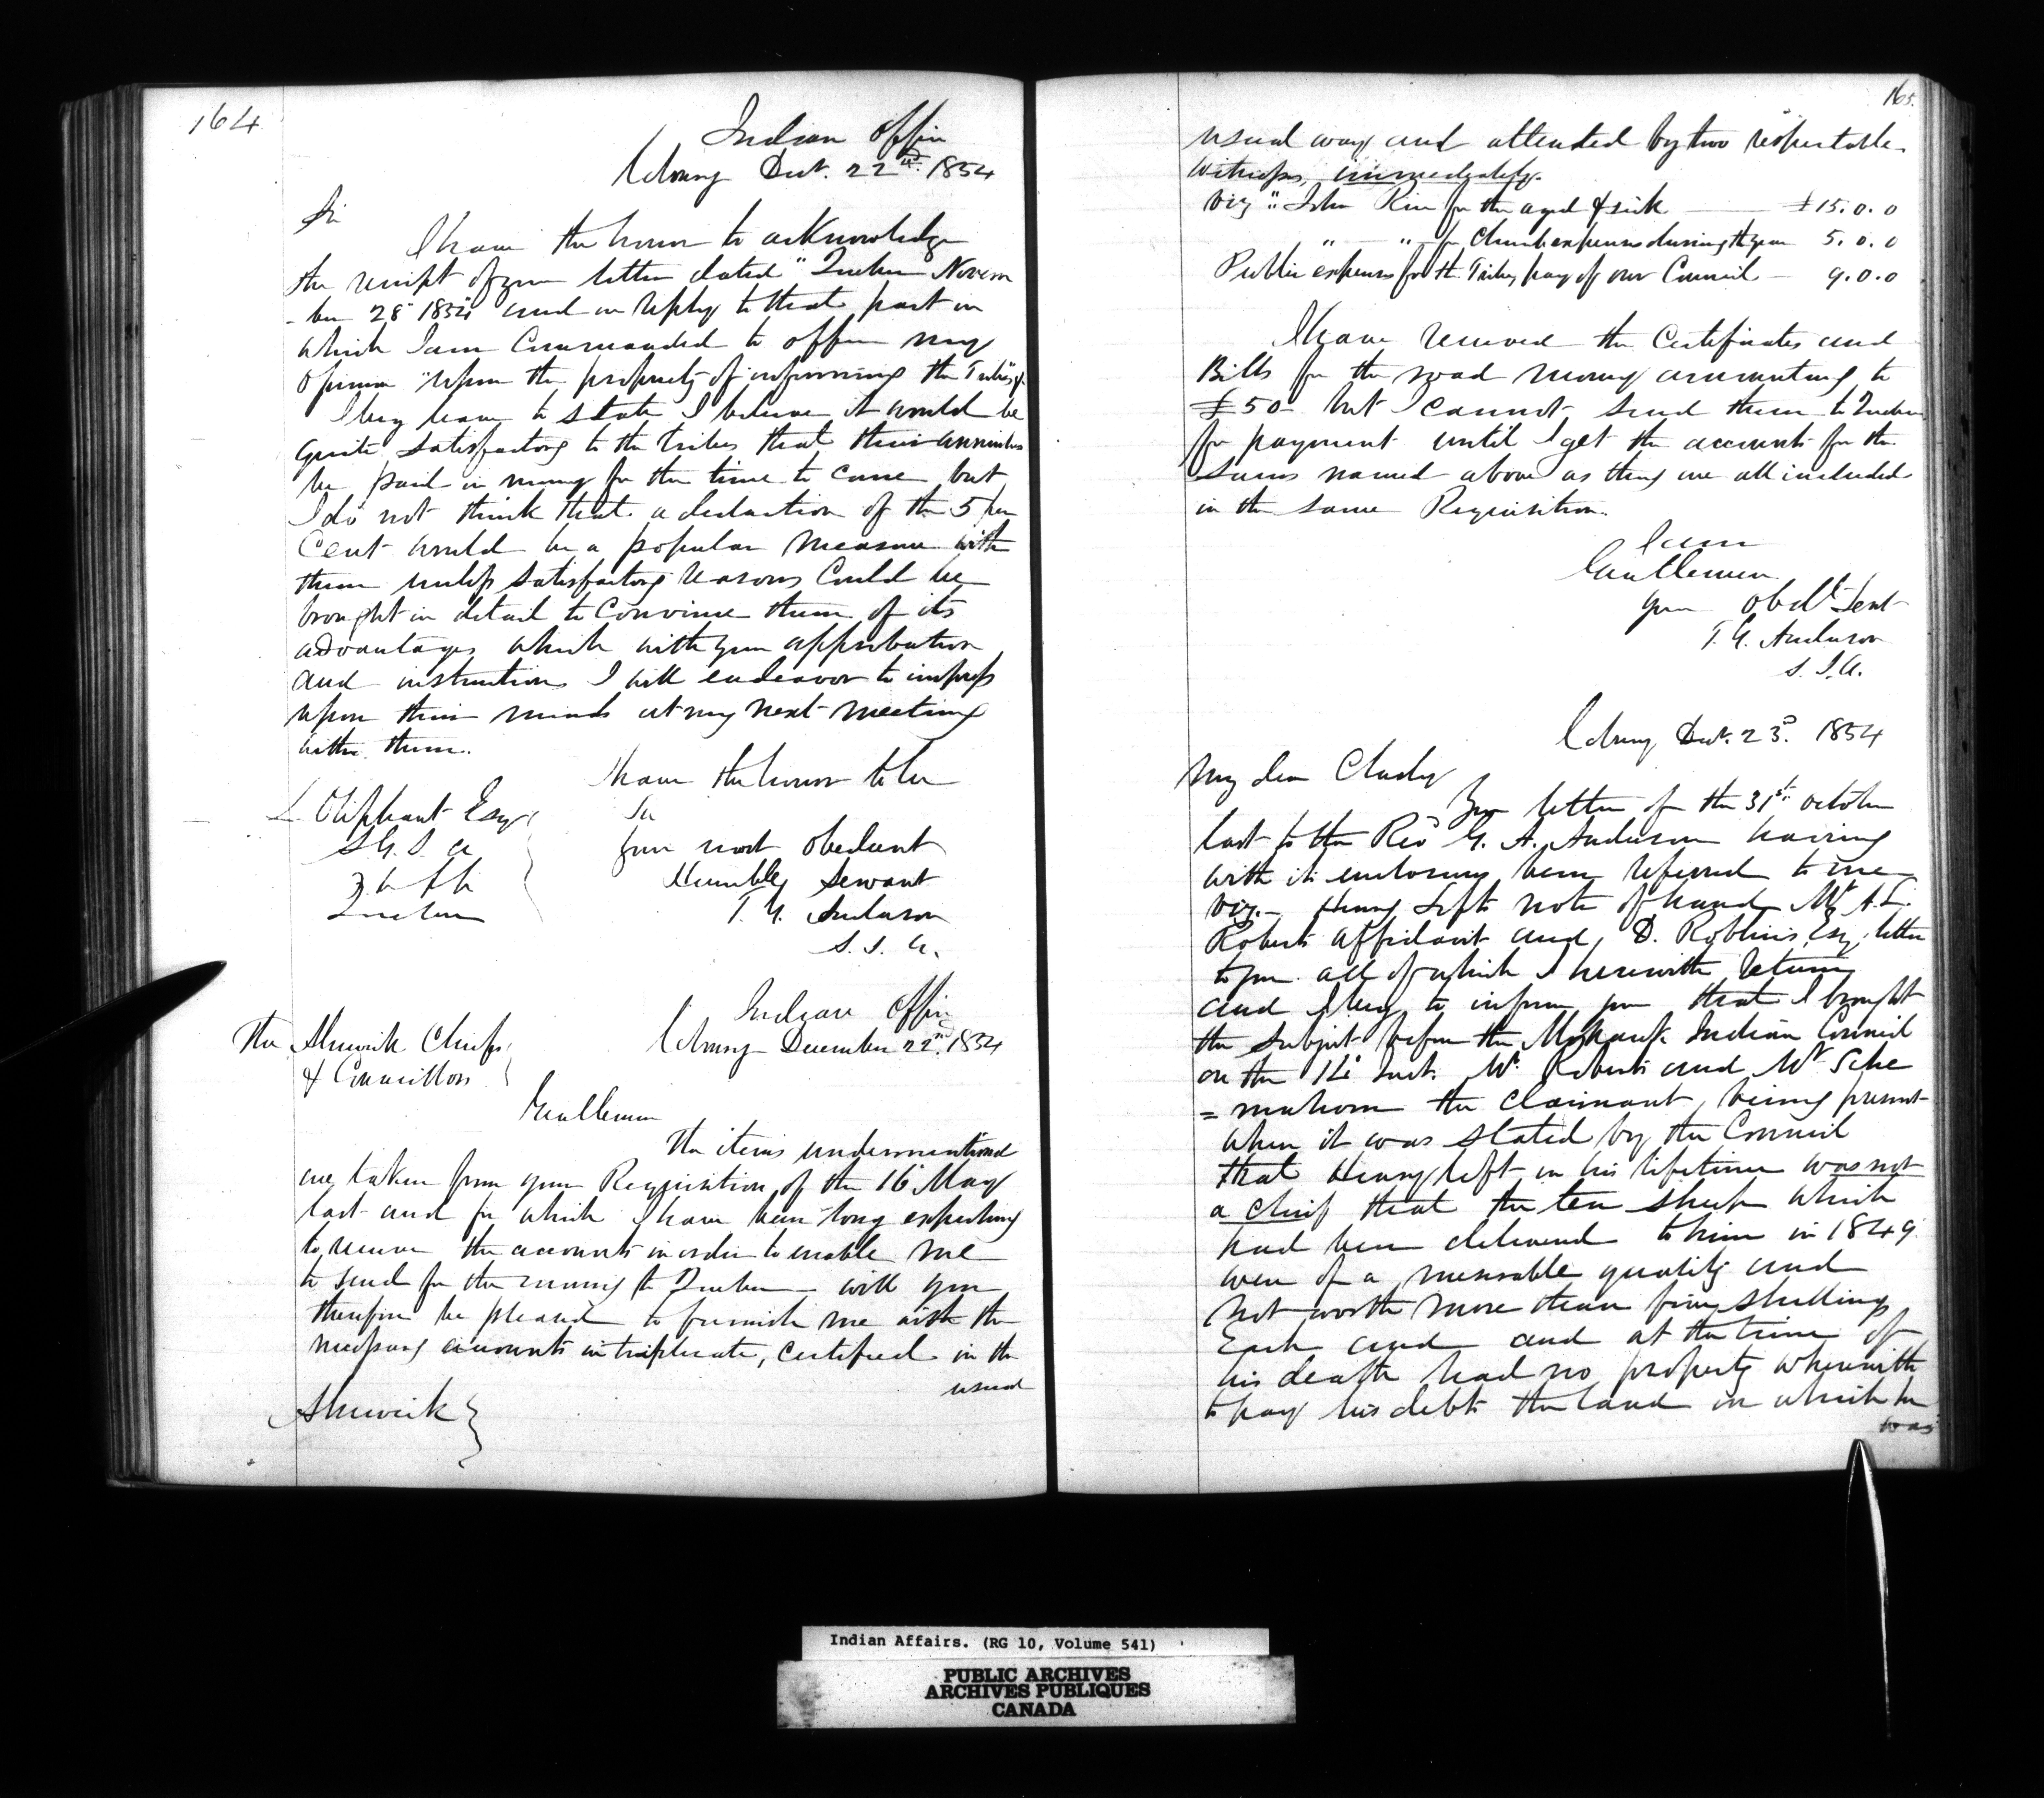 164
Indian Office
Cobourg Decr. 22nd. 1854
Sir
I have the honor to acknowledge
the receipt of your letter dated "Quebec Novem
-ber 28" 1854 and in reply to that part in
which I am Commanded to offer my
opinion "upon the propriety of informing the Tribes &c
I beg leave to state I believe it would be
quite satisfactory to the tribes that their annuities
be paid in money for the time to come but
I do not think that a deduction of the 5 per
Cent would be a popular measure with
them unless satisfactory reasons Could be
brought in detail to Convince them of its
advantages which with your approbation
and instructions I will endeavor to impress
upon their minds at my next meeting
with them.
I have the honor to be
Sir
Your most obedient
Humble Servant
T. G. Anderson
S. I. A.
L Oliphant Esqr
S G. I. A
Quebec
Indian Office
Cobourg December 22nd. 1854
The Alnwick Chiefs
& Councillors
Gentlemen
The items undermentioned
are taken from your Requisition of the 16 May
last and for which I have been long expecting
to receive the accounts in order to enable me
to send for the money to Quebec – will you
therefore be pleased to furnish me with the
necessary accounts in triplicate, certified in the
usual
Alnwick
165.
usual way and attended by two respectable
witnesses, immediately.
Viz " John Rice for the aged & sick £15.0.0
" " for Church expenses during the year 5.0.0
Public expenses for the Tribe, pay of our Council – 9.0.0
I have received the Certificates and
Bills for the road money amounting to
£50– but I cannot send them to Quebec
for payment until I get the accounts for the
sums named above as they are all included
in the same Requisition.
I am
Gentlemen
your obedt. Servt
T. G. Anderson
S. I. A.
Cobourg Decr. 23d. 1854
My dear Chudy
Your letter of the 31st. October
last to the Revd G. A. Anderson having
with its enclosures been referred to me
Viz.– Henry Lefts note of hand Mr A.L.
Roberts affidavit and D. Roblins Esq. letter
to you all of which I herewith return
and I beg to inform you that I brought
the subject before the Mohawk Indian Council
on the 14 Inst. Mr. Roberts and Mr Sche
=mahorn the Claimant, being present
when it was stated by the Council
that Henry left in his lifetime was not
a chief that the ten sheep which
had been delivered to him in 1849
were of a miserable quality and
not worth more than five shillings
Each and and at the time of
his death had no property wherewith
to pay his debts the land on which he
was
Indian Affairs. (RG 10, Volume 541)
PUBLIC ARCHIVES
ARCHIVES PUBLIQUES
CANADA